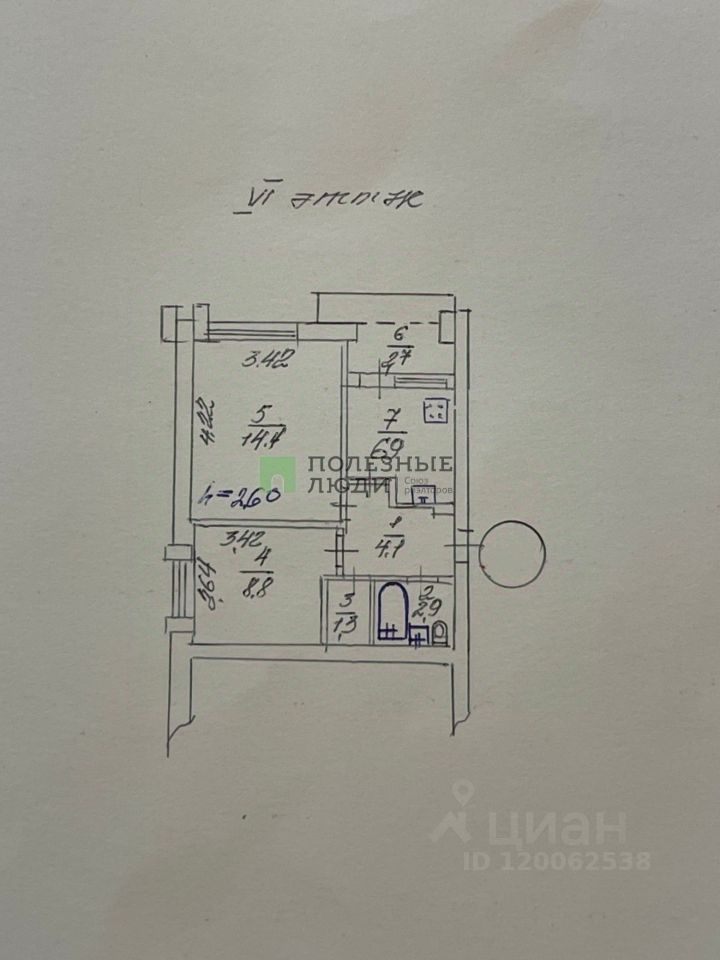 VI этаж
6
2,7
3.42
4.22
5
14.4
7
6,9
ПОЛЕЗНЫЕ
ЛЮДИ
Союз
риэлторов
h=2,60
1
4.1
3,42
4
8,8
2,64
3
1,3
2
2,9
циан
ID 120062538